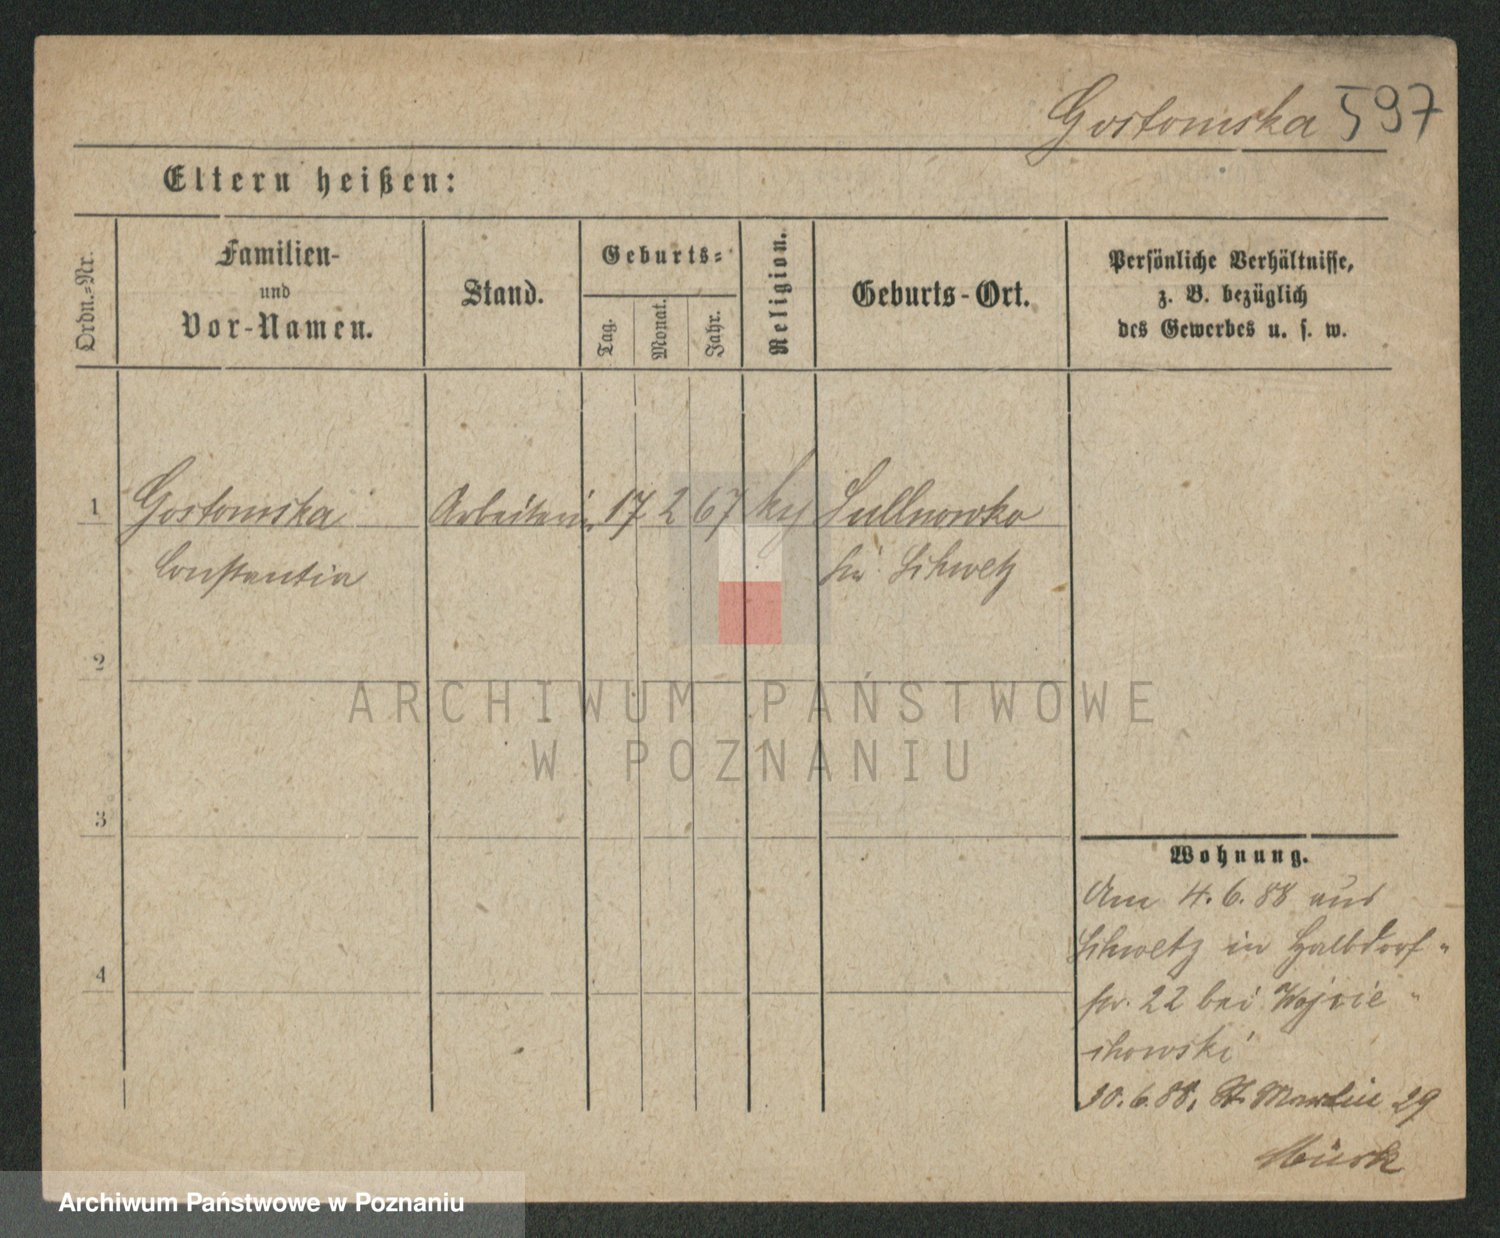 Gostomska 597
Eltern heißen:
Ordn.-Nr.
Familien-
und
Vor-Namen.
Stand.
Geburts-
Tag.
Monat.
Jahr.
Religion.
Geburts-Ort.
Persönliche Verhältnisse,
z. B. bezüglich
des Gewerbes u. s. w.
1 Gostomska Arbeiterin 17 2 67 Sullnowko
Constantia Schwetz
2
ARCHIWUM PAŃSTWOWE
W POZNANIU
3
Wohnung.
Am 4.6.88 aus
Schwetz in Halbdorf-
str. 22 bei Wojcie-
chowski
30.6.88, St. Martin 29
4
Archiwum Państwowe w Poznaniu